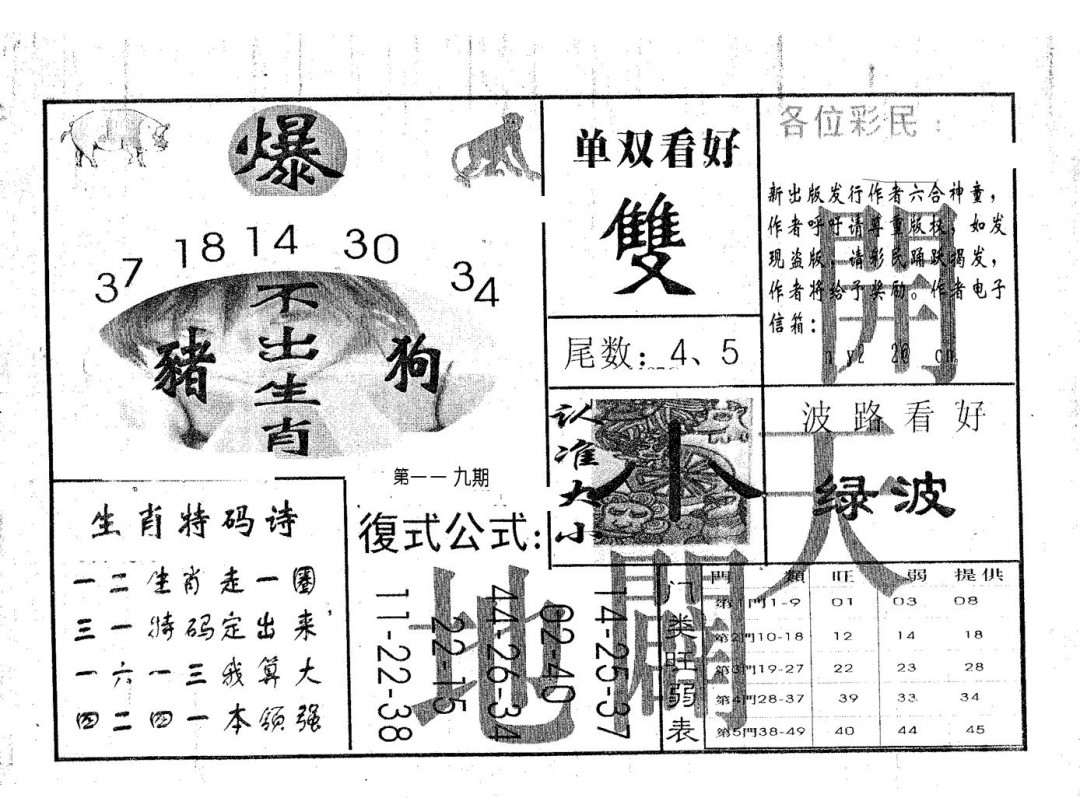 爆
37 18 14 30 34
不出生肖
豬 狗
第一一九期
单双看好
雙
尾数：4、5
各位彩民：
新出版发行作者六合神童，
作者呼吁请尊重版权，如发
现盗版，请彩民踊跃揭发，
作者将给予奖励。作者电子
信箱：
開
天
地
闢
认准大小
小
波路看好
绿波
生肖特码诗
一二生肖走一圈
三一特码定出来，
一六一三我算大
四二四一本领强
復式公式：
11-22-38
22-15
44-26-34
02-40
14-25-37
门类旺弱表
門類 旺 弱 提供
第1門1-9 01 03 08
第2門10-18 12 14 18
第3門19-27 22 23 28
第4門28-37 39 33 34
第5門38-49 40 44 45